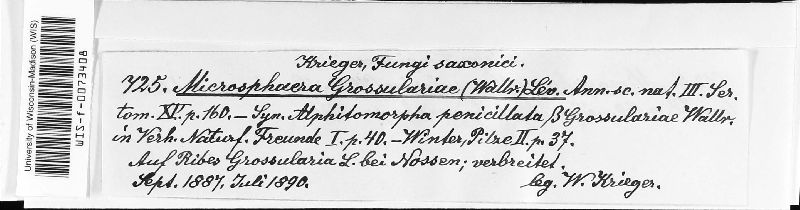 University of Wisconsin-Madison (WIS)
WIS-f-0073408
Krieger, Fungi saxonici.
725. Microsphaera Grossulariae (Wallr.) Lév. Ann. sc. nat. III. Ser.
tom. XV. p. 160. — Syn. Alphitomorpha penicillata β Grossulariae Wallr.
in Verh. Naturf. Freunde I. p. 40. — Winter, Pilze II. p. 37.
Auf Ribes Grossularia L. bei Nossen; verbreitet.
Sept. 1887, Juli 1890. leg. W. Krieger.